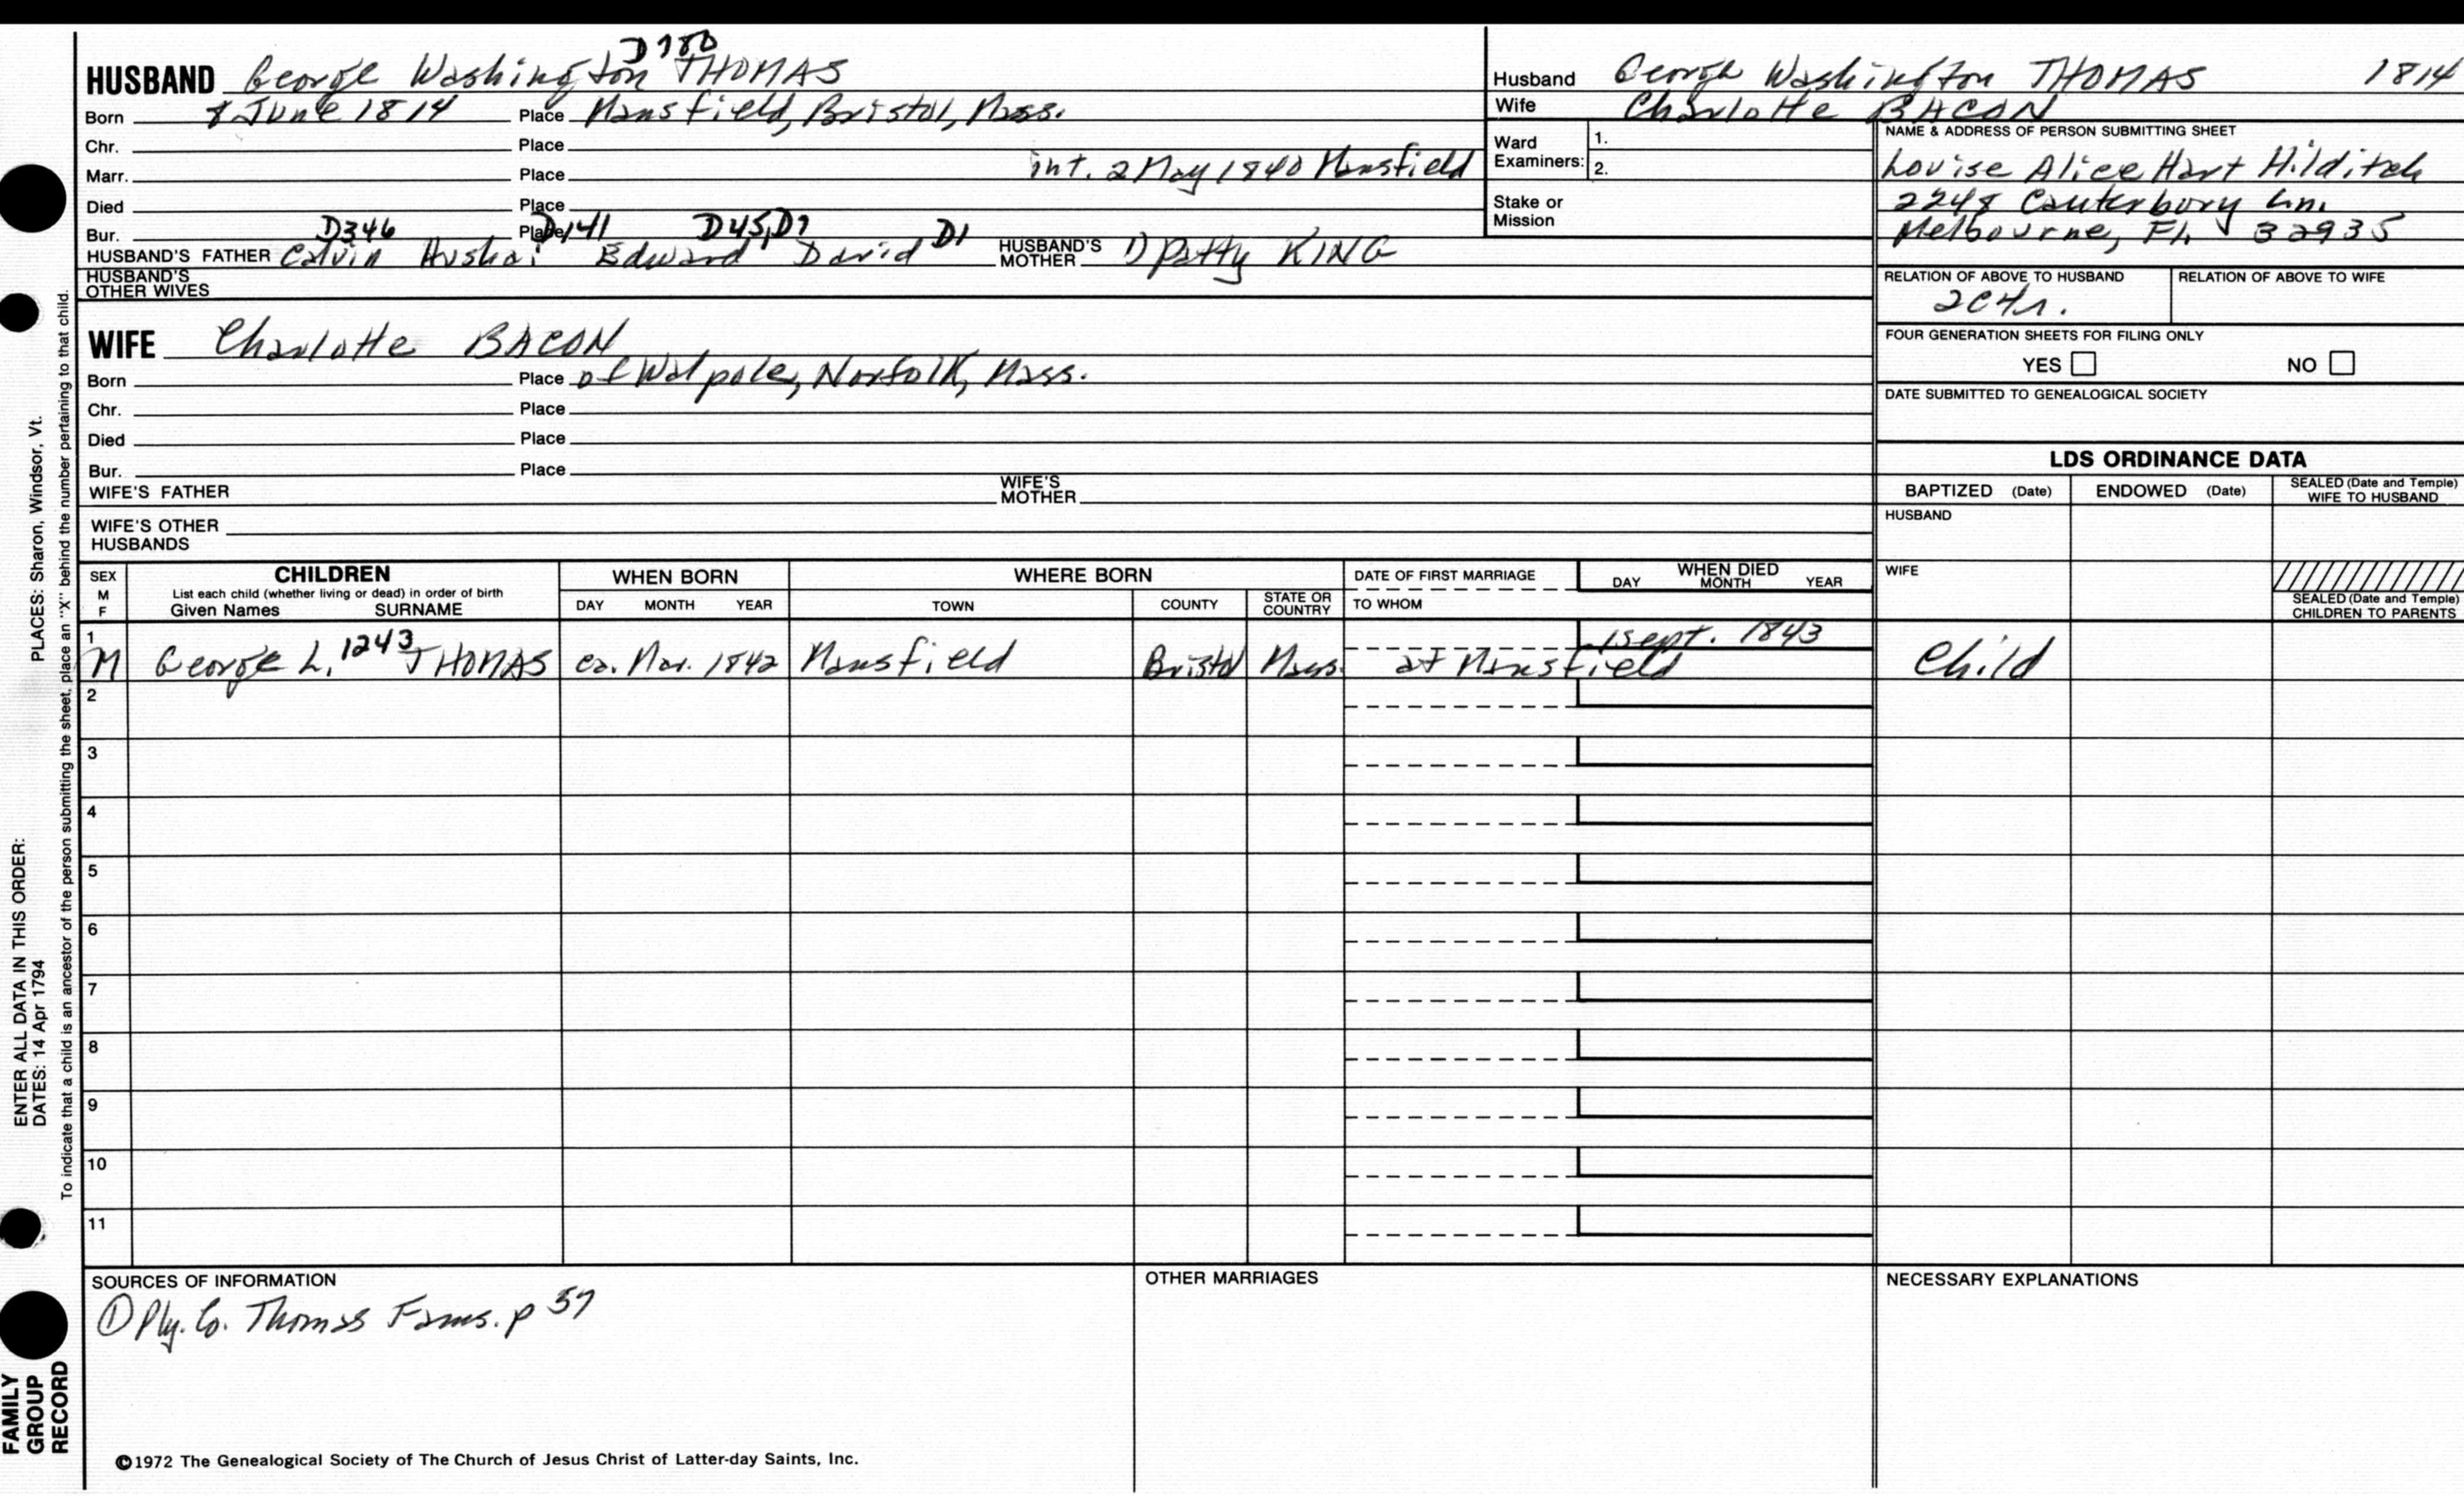 D780
HUSBAND George Washington THOMAS
Born 8 June 1814 Place Mansfield, Bristol, Mass.
Chr. Place
Marr. Place int. 2 May 1840 Mansfield
Died Place
Bur. Place
D346 D141 D45, D7 D1
HUSBAND'S FATHER Calvin Hushai Edward David HUSBAND'S MOTHER 1) Patty KING
HUSBAND'S OTHER WIVES
WIFE Charlotte BACON
Born Place of Walpole, Norfolk, Mass.
Chr. Place
Died Place
Bur. Place
WIFE'S FATHER WIFE'S MOTHER
WIFE'S OTHER HUSBANDS
Husband George Washington THOMAS 1814
Wife Charlotte BACON
Ward Examiners: 1.
2.
Stake or Mission
NAME & ADDRESS OF PERSON SUBMITTING SHEET
Louise Alice Hart Hilditch
2248 Canterbury Ln.
Melbourne, FL 32935
RELATION OF ABOVE TO HUSBAND RELATION OF ABOVE TO WIFE
2C4r.
FOUR GENERATION SHEETS FOR FILING ONLY
YES NO
DATE SUBMITTED TO GENEALOGICAL SOCIETY
LDS ORDINANCE DATA
BAPTIZED (Date) ENDOWED (Date) SEALED (Date and Temple) WIFE TO HUSBAND
HUSBAND
WIFE
SEALED (Date and Temple) CHILDREN TO PARENTS
SEX M F
CHILDREN
List each child (whether living or dead) in order of birth
Given Names SURNAME
WHEN BORN
DAY MONTH YEAR
WHERE BORN
TOWN COUNTY STATE OR COUNTRY
DATE OF FIRST MARRIAGE
TO WHOM
WHEN DIED
DAY MONTH YEAR
1 1 Sept. 1843
M George L. 1243 THOMAS ca. Mar. 1842 Mansfield Bristol Mass. at Mansfield Child
2
3
4
5
6
7
8
9
10
11
SOURCES OF INFORMATION
① Ply. Co. Thomas Fams. p 57
OTHER MARRIAGES
NECESSARY EXPLANATIONS
©1972 The Genealogical Society of The Church of Jesus Christ of Latter-day Saints, Inc.
FAMILY GROUP RECORD
ENTER ALL DATA IN THIS ORDER:
DATES: 14 Apr 1794 PLACES: Sharon, Windsor, Vt.
To indicate that a child is an ancestor of the person submitting the sheet, place an "X" behind the number pertaining to that child.